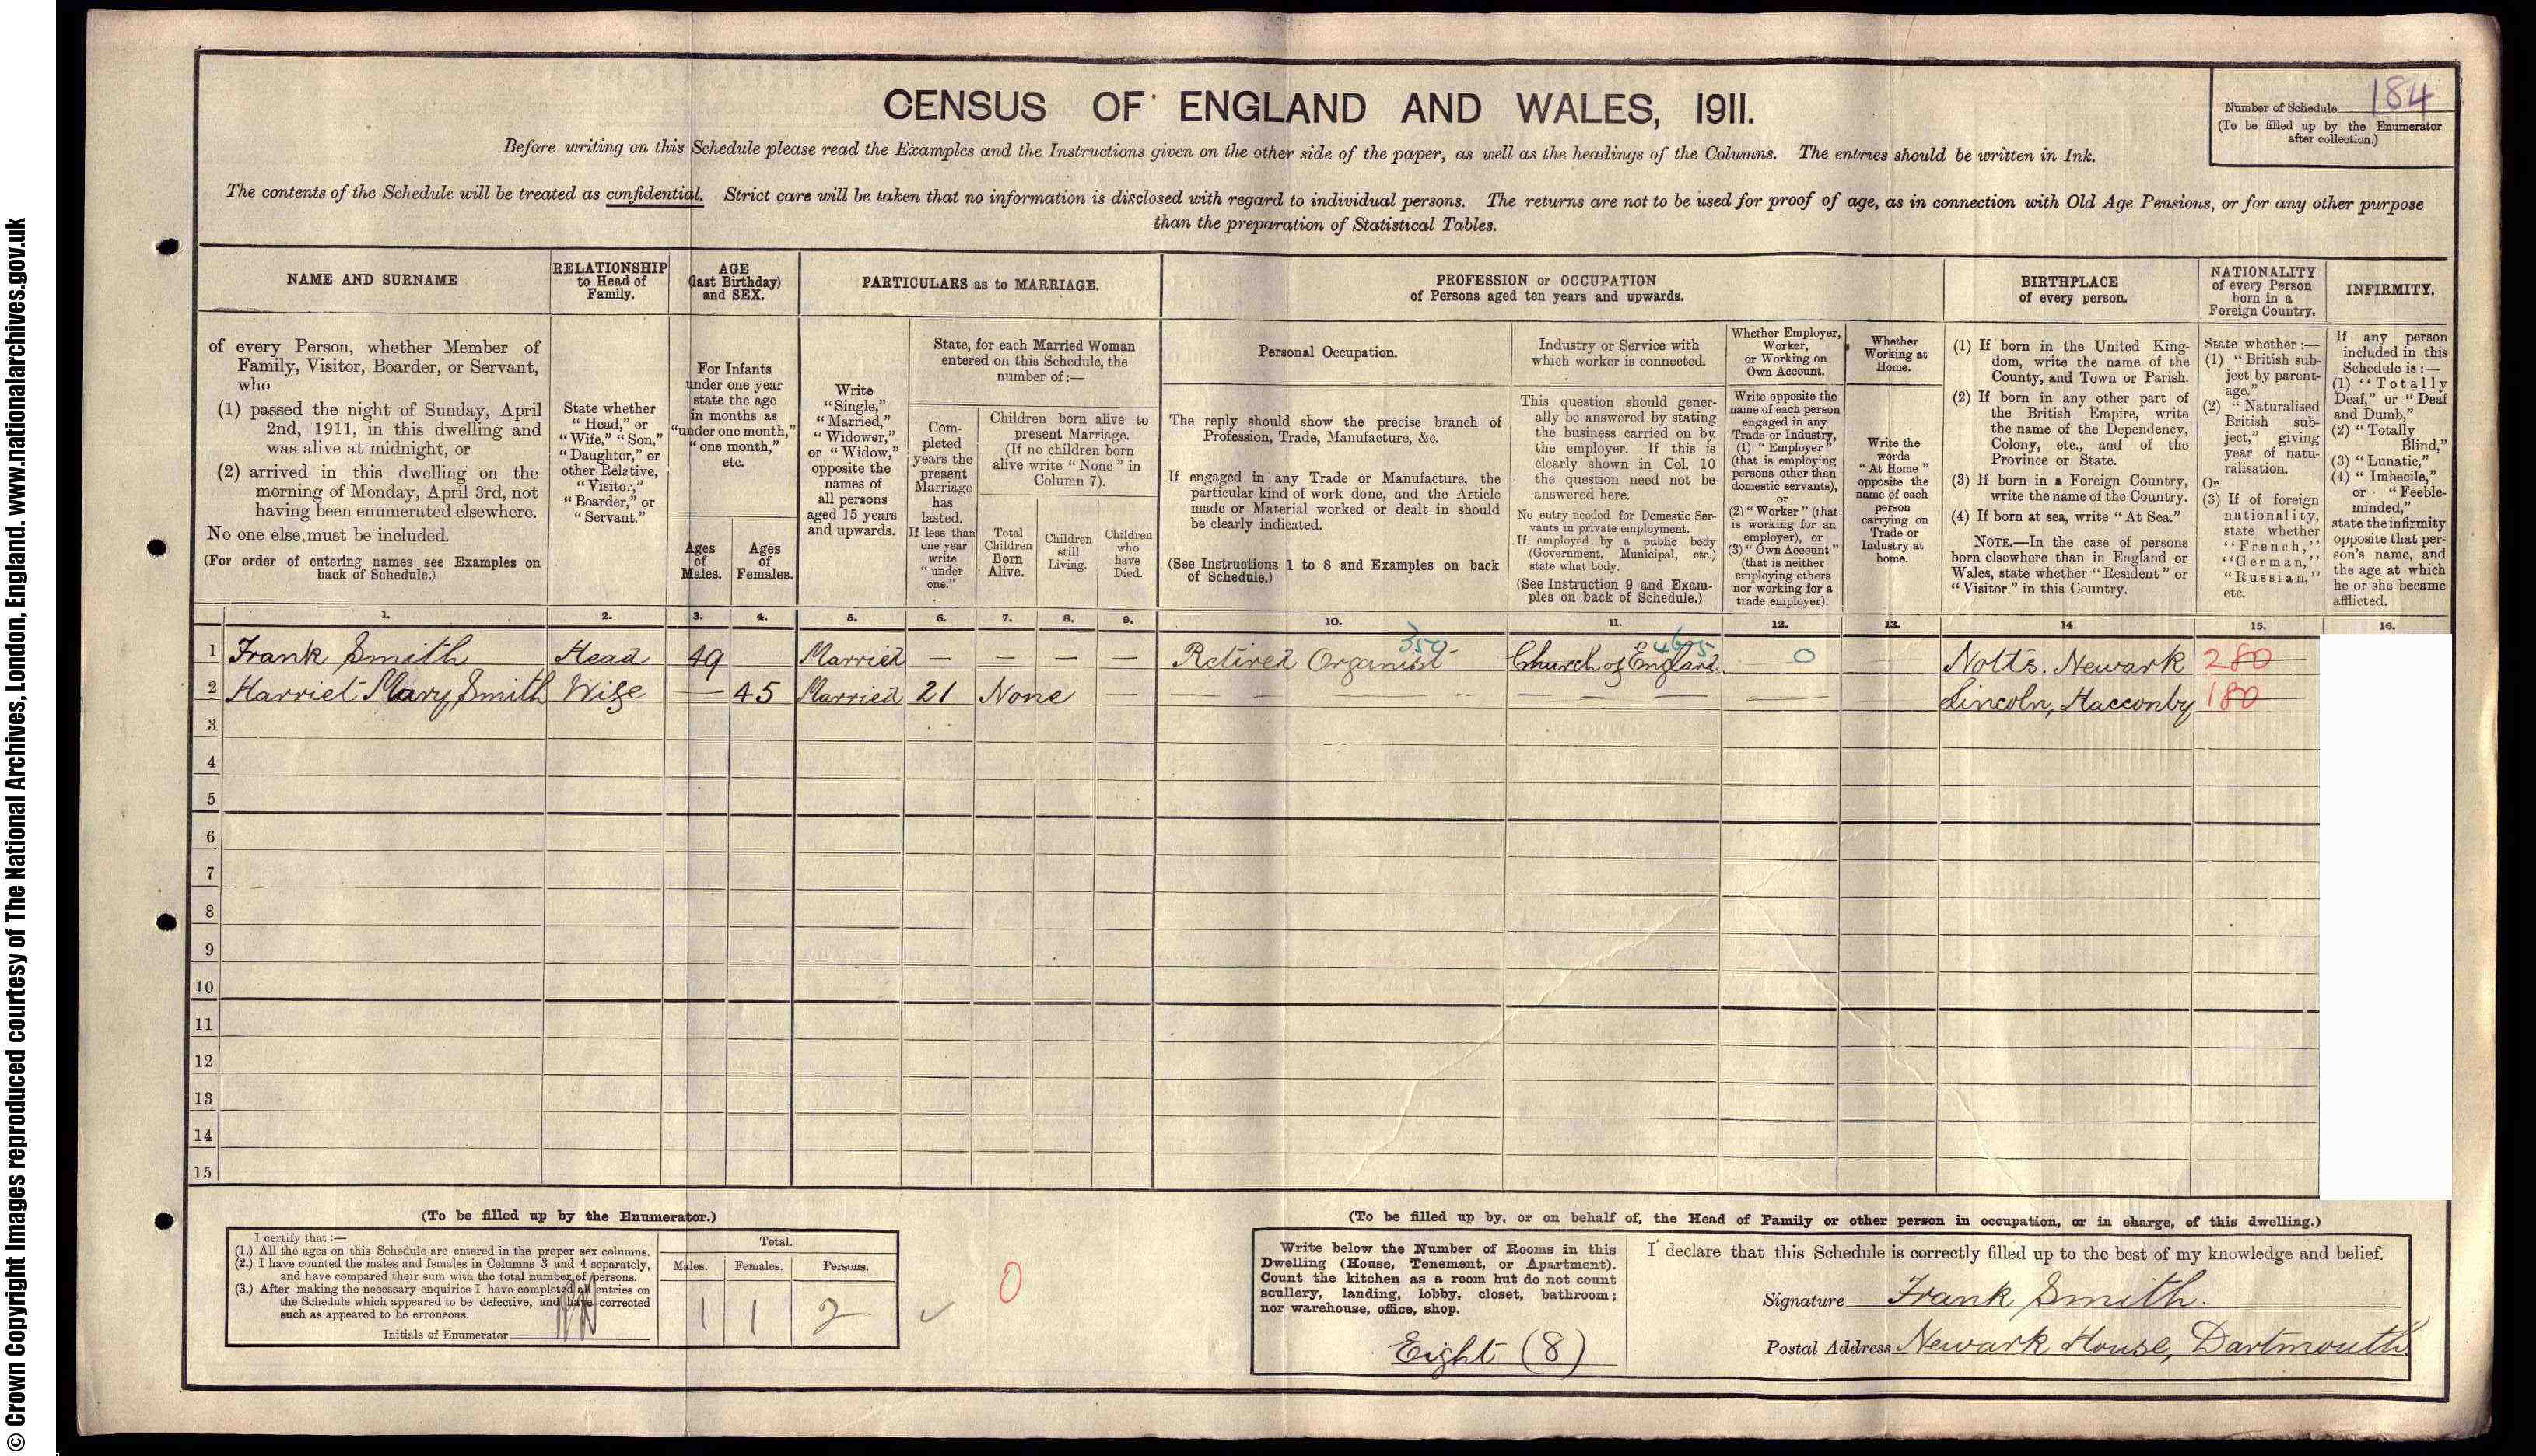 © Crown Copyright Images reproduced courtesy of The National Archives, London, England. www.nationalarchives.gov.uk
CENSUS OF ENGLAND AND WALES, 1911.
Number of Schedule 184
(To be filled up by the Enumerator
after collection.)
Before writing on this Schedule please read the Examples and the Instructions given on the other side of the paper, as well as the headings of the Columns. The entries should be written in Ink.
The contents of the Schedule will be treated as confidential. Strict care will be taken that no information is disclosed with regard to individual persons. The returns are not to be used for proof of age, as in connection with Old Age Pensions, or for any other purpose
than the preparation of Statistical Tables.
NAME AND SURNAME
of every Person, whether Member of
Family, Visitor, Boarder, or Servant,
who
(1) passed the night of Sunday, April
2nd, 1911, in this dwelling and
was alive at midnight, or
(2) arrived in this dwelling on the
morning of Monday, April 3rd, not
having been enumerated elsewhere.
No one else must be included.
(For order of entering names see Examples on
back of Schedule.)
RELATIONSHIP
to Head of
Family.
State whether
"Head," or
"Wife," "Son,"
"Daughter," or
other Relative,
"Visitor,"
"Boarder," or
"Servant."
AGE
(last Birthday)
and SEX.
For Infants
under one year
state the age
in months as
"under one month,"
"one month,"
etc.
Ages
of
Males.
Ages
of
Females.
PARTICULARS as to MARRIAGE.
Write
"Single,"
"Married,"
"Widower,"
or "Widow,"
opposite the
names of
all persons
aged 15 years
and upwards.
State, for each Married Woman
entered on this Schedule, the
number of:—
Com-
pleted
years the
present
Marriage
has
lasted.
If less than
one year
write
"under
one."
Children born alive to
present Marriage.
(If no children born
alive write "None" in
Column 7).
Total
Children
Born
Alive.
Children
still
Living.
Children
who
have
Died.
PROFESSION or OCCUPATION
of Persons aged ten years and upwards.
Personal Occupation.
The reply should show the precise branch of
Profession, Trade, Manufacture, &c.
If engaged in any Trade or Manufacture, the
particular kind of work done, and the Article
made or Material worked or dealt in should
be clearly indicated.
(See Instructions 1 to 8 and Examples on back
of Schedule.)
Industry or Service with
which worker is connected.
This question should gener-
ally be answered by stating
the business carried on by
the employer. If this is
clearly shown in Col. 10
the question need not be
answered here.
No entry needed for Domestic Ser-
vants in private employment.
If employed by a public body
(Government, Municipal, etc.)
state what body.
(See Instruction 9 and Exam-
ples on back of Schedule.)
Whether Employer,
Worker,
or Working on
Own Account.
Write opposite the
name of each person
engaged in any
Trade or Industry,
(1) "Employer"
(that is employing
persons other than
domestic servants),
or
(2) "Worker" (that
is working for an
employer), or
(3) "Own Account"
(that is neither
employing others
nor working for a
trade employer).
Whether
Working at
Home.
Write the
words
"At Home"
opposite the
name of each
person
carrying on
Trade or
Industry at
home.
BIRTHPLACE
of every person.
(1) If born in the United King-
dom, write the name of the
County, and Town or Parish.
(2) If born in any other part of
the British Empire, write
the name of the Dependency,
Colony, etc., and of the
Province or State.
(3) If born in a Foreign Country,
write the name of the Country.
(4) If born at sea, write "At Sea."
NOTE.—In the case of persons
born elsewhere than in England or
Wales, state whether "Resident" or
"Visitor" in this Country.
NATIONALITY
of every Person
born in a
Foreign Country.
State whether:—
(1) "British sub-
ject by parent-
age."
(2) "Naturalised
British sub-
ject," giving
year of natu-
ralisation.
Or
(3) If of foreign
nationality,
state whether
"French,"
"German,"
"Russian,"
etc.
INFIRMITY.
If any person
included in this
Schedule is:—
(1) "Totally
Deaf," or "Deaf
and Dumb,"
(2) "Totally
Blind,"
(3) "Lunatic,"
(4) "Imbecile,"
or "Feeble-
minded,"
state the infirmity
opposite that per-
son's name, and
the age at which
he or she became
afflicted.
1. 2. 3. 4. 5. 6. 7. 8. 9. 10. 11. 12. 13. 14. 15. 16.
1 Frank Smith Head 49 Married — — — — Retired Organist 350 Church of England 465 0 Notts. Newark 280
2 Harriet Mary Smith Wife — 45 Married 21 None — Lincoln, Hacconby 180
3
4
5
6
7
8
9
10
11
12
13
14
15
(To be filled up by the Enumerator.)
I certify that:—
(1.) All the ages on this Schedule are entered in the proper sex columns.
(2.) I have counted the males and females in Columns 3 and 4 separately,
and have compared their sum with the total number of persons.
(3.) After making the necessary enquiries I have completed all entries on
the Schedule which appeared to be defective, and have corrected
such as appeared to be erroneous.
Initials of Enumerator
Total.
Males. Females. Persons.
1 1 2
0
(To be filled up by, or on behalf of, the Head of Family or other person in occupation, or in charge, of this dwelling.)
Write below the Number of Rooms in this
Dwelling (House, Tenement, or Apartment).
Count the kitchen as a room but do not count
scullery, landing, lobby, closet, bathroom;
nor warehouse, office, shop.
Eight (8)
I declare that this Schedule is correctly filled up to the best of my knowledge and belief.
Signature Frank Smith.
Postal Address Newark House, Dartmouth